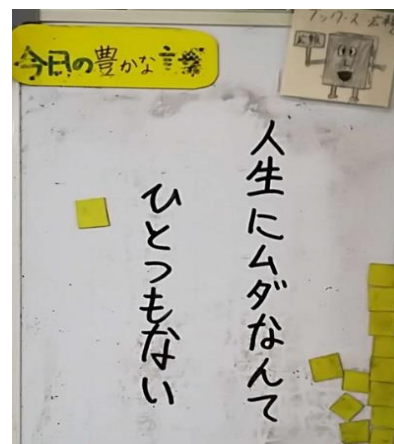 今日の豊かな言葉
ブックス広報
広報
人生にムダなんて
ひとつもない